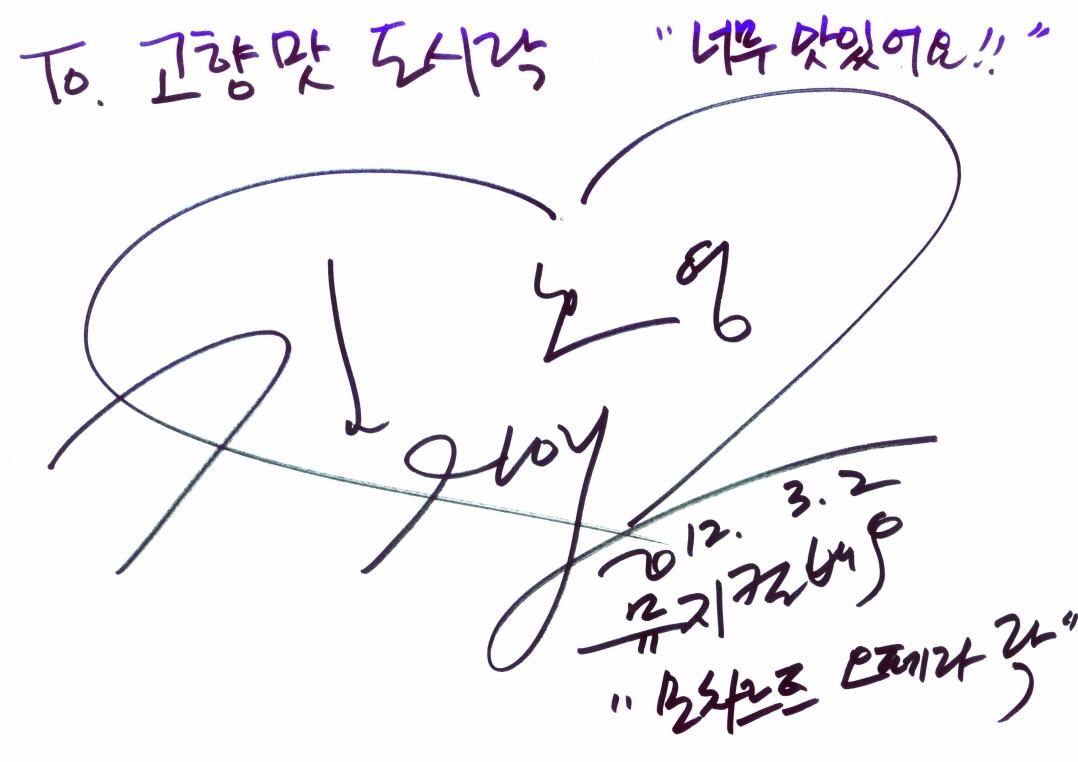 To. 고향맛 도시락 "너무 맛있어요!!"
2012. 3. 2
뮤지컬배우
"모차르트 오페라 락"